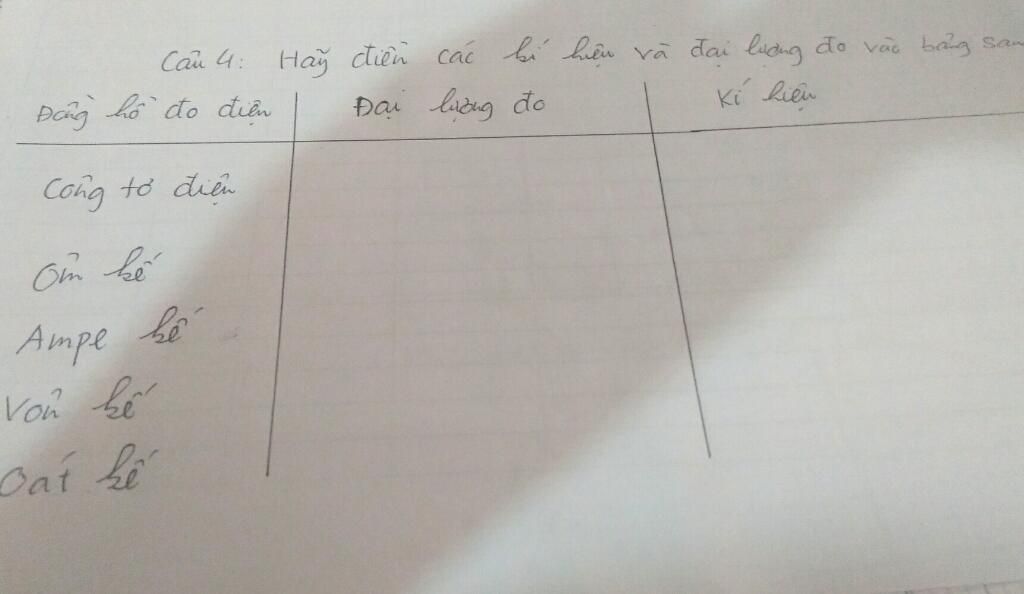 Câu 4: Hãy điền các kí hiệu và đại lượng đo vào bảng sau
Đồng hồ đo điện Đại lượng đo Kí hiệu
Công tơ điện
Ôm kế
Ampe kế
Vôn kế
Oát kế